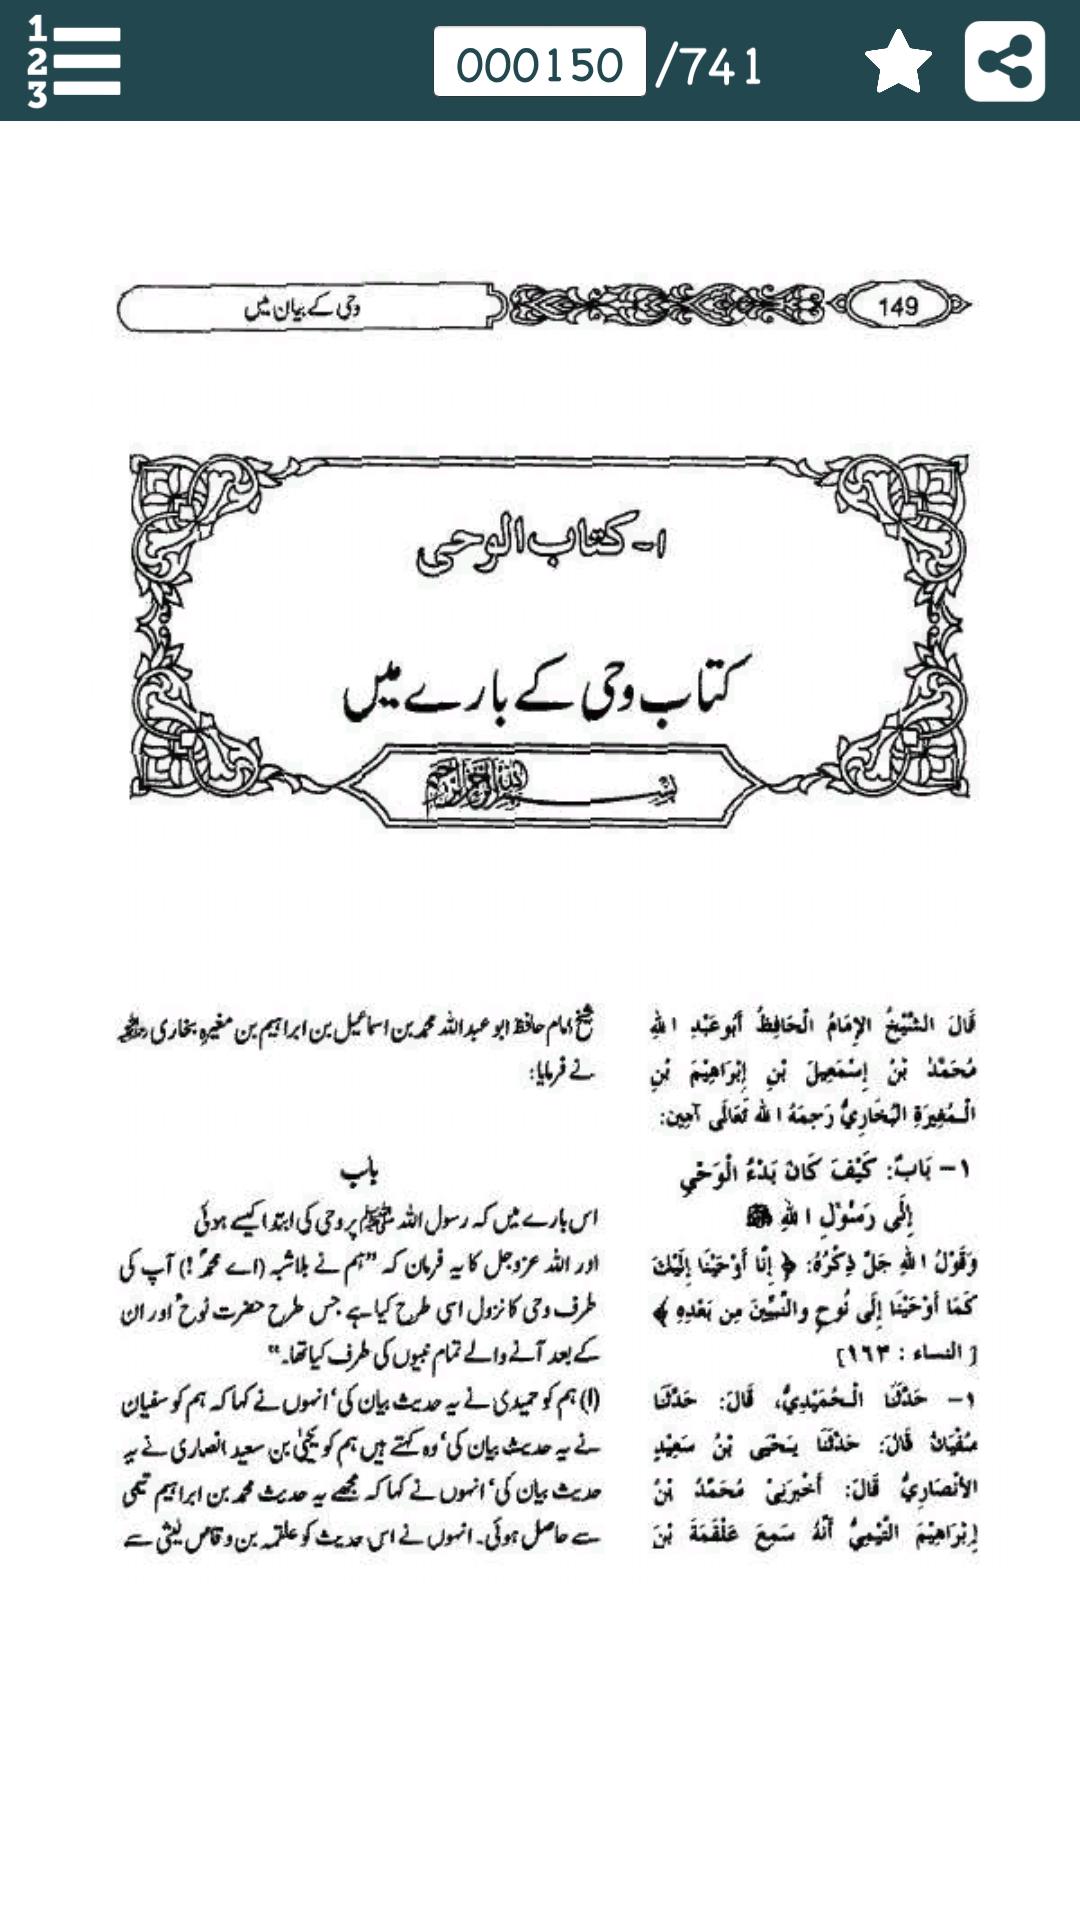 1
2
3
000150 /741
وحی کے بیان میں
149
۱- کتاب الوحی
کتاب وحی کے بارے میں
بسم الله الرحمن الرحيم
قَالَ الشَّيْخُ الإِمَامُ الْحَافِظُ أَبُو عَبْدِ اللهِ
مُحَمَّدُ بْنُ إِسْمَعِيلَ بْنِ إِبْرَاهِيْمَ بْنِ
الْمُغِيرَةِ الْبُخَارِيُّ رَحِمَهُ اللهُ تَعَالَى آمِين:
١- بَابُ: كَيْفَ كَانَ بَدْءُ الْوَحْيِ
إِلَى رَسُوْلِ اللهِ ﷺ
وَقَوْلُ اللهِ جَلَّ ذِكْرُهُ: ﴿ إِنَّا أَوْحَيْنَا إِلَيْكَ
كَمَا أَوْحَيْنَا إِلَى نُوحٍ والنَّبِيِّينَ مِن بَعْدِهِ ﴾
[ النساء : ١٦٣]
١- حَدَّثَنَا الْحُمَيْدِيُّ، قَالَ: حَدَّثَنَا
سُفْيَانُ قَالَ: حَدَّثَنَا يَحْيَى بْنُ سَعِيْدٍ
الأَنْصَارِيُّ قَالَ: أَخْبَرَنِيْ مُحَمَّدُ بْنُ
إِبْرَاهِيْمَ التَّيْمِيُّ أَنَّهُ سَمِعَ عَلْقَمَةَ بْنَ
شیخ امام حافظ ابو عبداللہ محمد بن اسماعیل بن ابراہیم بن مغیرہ بخاری رحمہ اللہ
نے فرمایا:
باب
اس بارے میں کہ رسول اللہ ﷺ پر وحی کی ابتدا کیسے ہوئی
اور اللہ عزوجل کا یہ فرمان کہ ”ہم نے بلاشبہ (اے محمدؐ!) آپ کی
طرف وحی کا نزول اسی طرح کیا ہے جس طرح حضرت نوحؑ اور ان
کے بعد آنے والے تمام نبیوں کی طرف کیا تھا۔“
(۱) ہم کو حمیدی نے یہ حدیث بیان کی‘ انہوں نے کہا کہ ہم کو سفیان
نے یہ حدیث بیان کی‘ وہ کہتے ہیں ہم کو یحییٰ بن سعید انصاری نے یہ
حدیث بیان کی‘ انہوں نے کہا کہ مجھے یہ حدیث محمد بن ابراہیم تیمی
سے حاصل ہوئی۔ انہوں نے اس حدیث کو علقمہ بن وقاص لیثی سے